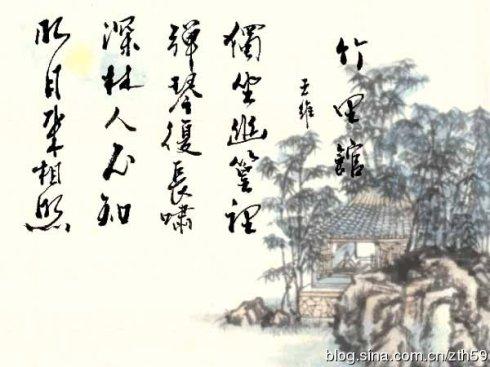 竹里館
王維
獨坐幽篁裡
彈琴復長嘯
深林人不知
明月來相照
blog.sina.com.cn/zth59